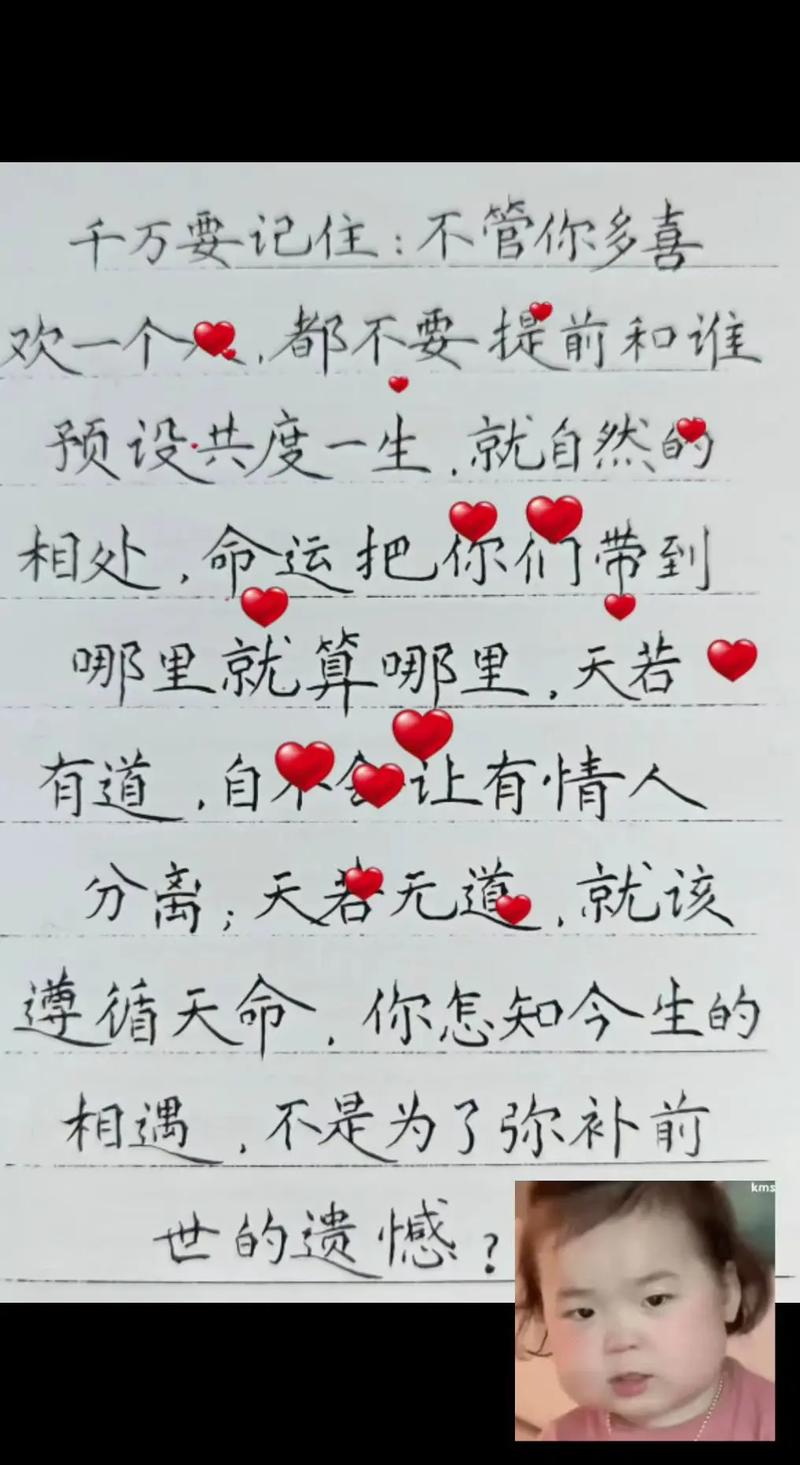 千万要记住：不管你多喜
欢一个人，都不要提前和谁
预设共度一生，就自然的
相处，命运把你们带到
哪里就算哪里，天若
有道，自不会让有情人
分离；天若无道，就该
遵循天命，你怎知今生的
相遇，不是为了弥补前
世的遗憾？
kms